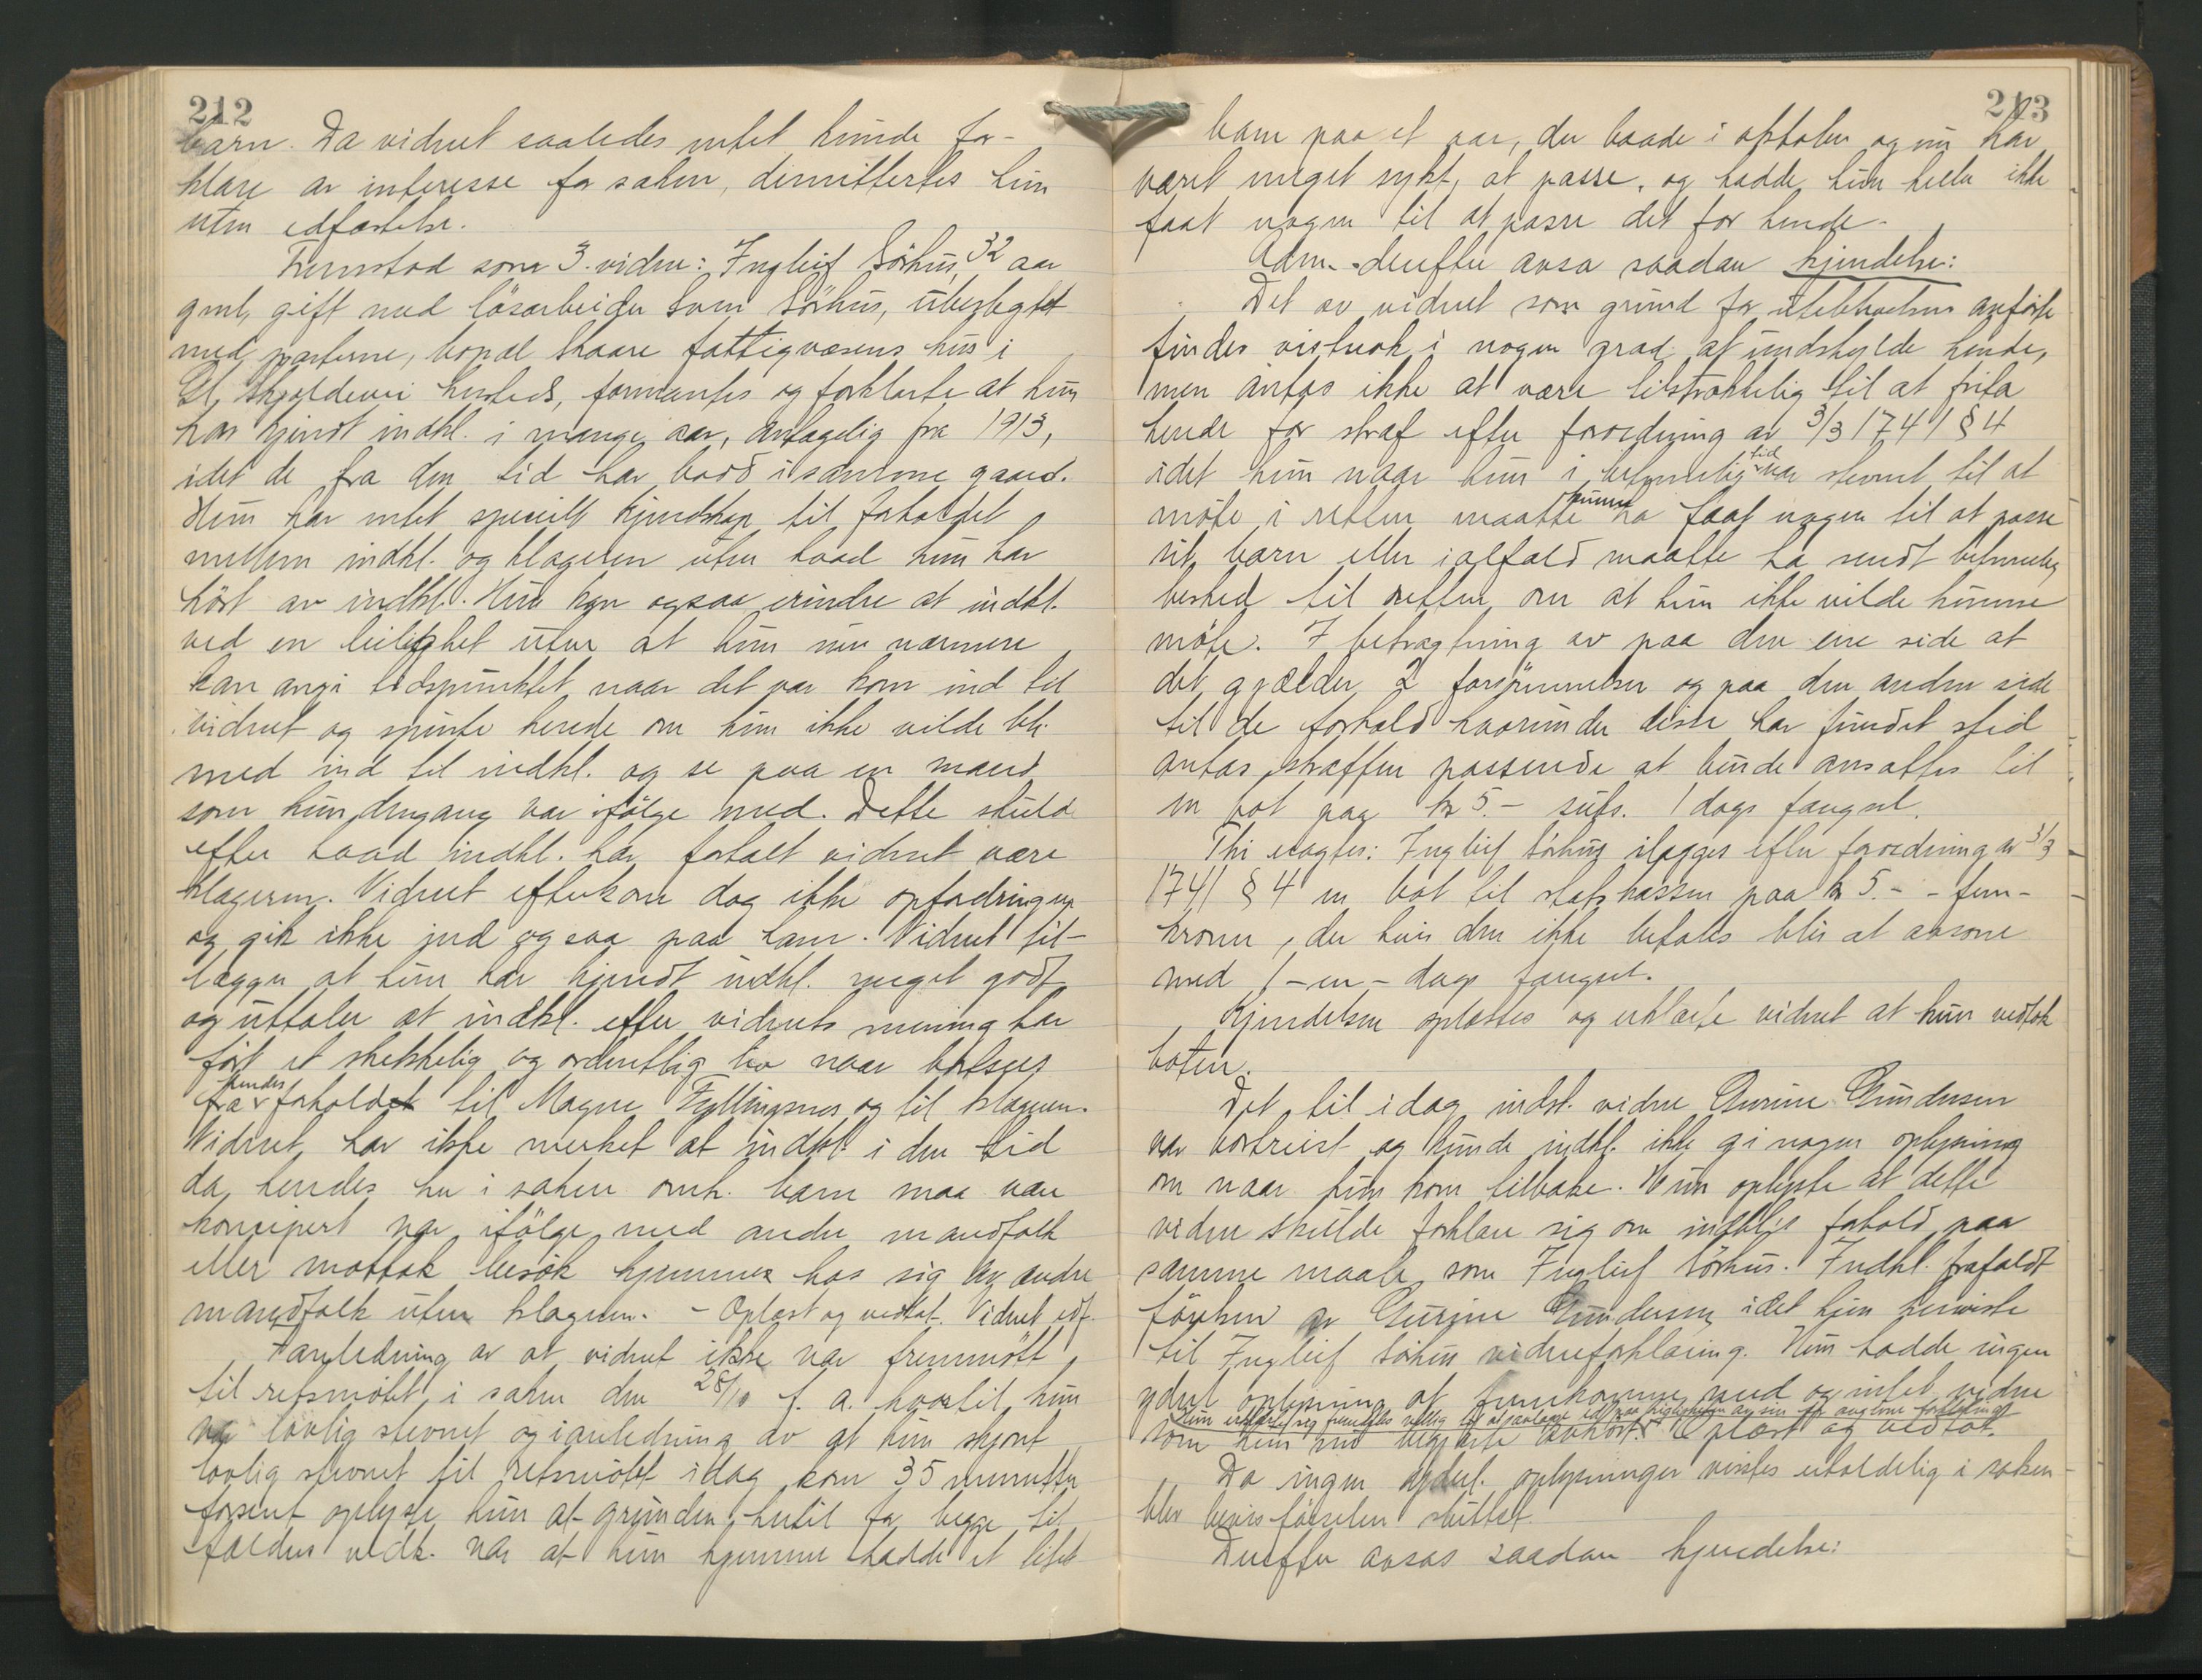 212
barn. Da vidnet saaledes intet kunde for-
klare av interesse for saken, dimittertes hun
uten edfæstelse.
Fremstod som 3. vidne: Ingleif Sörhus, 32 aar
gml, gift med lösarbeider Sven Sörhus, ubeslegtet
med parterne, bopæl Skaare fattigvæsens hus i
Skjoldavei hersteds, formantes og forklarte at hun
har kjendt indkl. i mange aar, antagelig fra 1913,
idet de fra den tid har bodd i samme gaard.
Hun har intet specielt kjendskap til forholdet
mellem indkl. og klageren uten hvad hun har
hört av indkl. Hun kan ogsaa erindre at indkl.
ved en leilighet uten at hun nu nærmere
kan angi tidspunktet naar det var kom ind til
vidnet og spurte hende om hun ikke vilde bli
med ind til indkl. og se paa en mand
som hun dengang var i fölge med. Dette skulde
efter hvad indkl. har fortalt vidnet være
klageren. Vidnet efterkom dog ikke opfordringen
og gik ikke ind og saa paa ham. Vidnet til-
lægger at hun har kjendt indkl. meget godt
og uttaler at indkl. efter vidnets mening har
fört et skikkelig og ordentlig liv naar bortsees
fra hendes forholdet til Magne Fyllingsnes og til klageren.
Vidnet har ikke merket at indkl. i den tid
da hendes her i saken omh. barn maa være
koncipert var ifölge med andre mandfolk
eller mottok besök hjemme hos sig av andre
mandfolk uten klageren. - Oplæst og vedtat. Vidnet edf.
I anledning av at vidnet ikke var fremmött
til retsmötet i saken den 28/10 f. a. hvortil hun
var lovlig stevnet og i anledning av at hun skjönt
lovlig stevnet til retsmötet idag kom 35 minutter
forsent oplyste hun at grunden hertil for begge til-
fælders vedk. var at hun hjemme hadde et litet
213
barn paa et aar, der baade i oktober og nu har
været meget sykt, at passe, og hadde hun heller ikke
faat nogen til at passe det for hende.
Adm. derefter avsa saadan kjendelse:
Det av vidnet som grund for uteblivelsen anförte
findes vistnok i nogen grad at undskylde hende,
men antas ikke at være tilstrækkelig til at frita
hende for straf efter forordning av 3/3 1741 § 4
idet hun naar hun i betimelig tid var stevnet til at
möte i retten maatte kunne ha faat nogen til at passe
sit barn eller ialfald maatte ha sendt betimelig
besked til retten om at hun ikke vilde kunne
möte. I betragtning av paa den ene side at
det gjælder 2 forsömmelser og paa den anden side
til de forhold hvorunder disse har fundet sted
antas straffen passende at kunde ansættes til
en bot paa kr 5.- subs. 1 dags fængsel.
Thi eragtes: Ingleif Sörhus ilægges efter forordning av 3/3
1741 § 4 en bot til statskassen paa kr 5.- - fem-
kroner, der hvis den ikke betales blir at avsone
med 1 -en- dags fængsel.
Kjendelsen oplæstes og erklærte vidnet at hun vedtok
boten.
Det til idag indst. vidne Gurine Gundersen
var bortreist og kunde indkl. ikke gi nogen oplysning
om naar hun kom tilbake. Hun oplyste at dette
vidne skulde forklare sig om indkl.s forhold paa
samme maate som Ingleif Sörhus. Indkl. frafaldt
förelsen av Gurine Gundersen, idet hun henviste
til Ingleif Sörhus vidneforklaring. Hun hadde ingen
yderl. oplysning at fremkomme med og intet vidne
Hun erklærte sig fremdeles villig til at avlægge ed paa rigtigheten av sin avgivne forklaring.
som hun nu begjærte avhört. Oplæst og vedtat.
Da ingen yderl. oplysninger ventes erholdelig i saken
blev bevisförselen sluttet.
Derefter avsas saadan kjendelse: